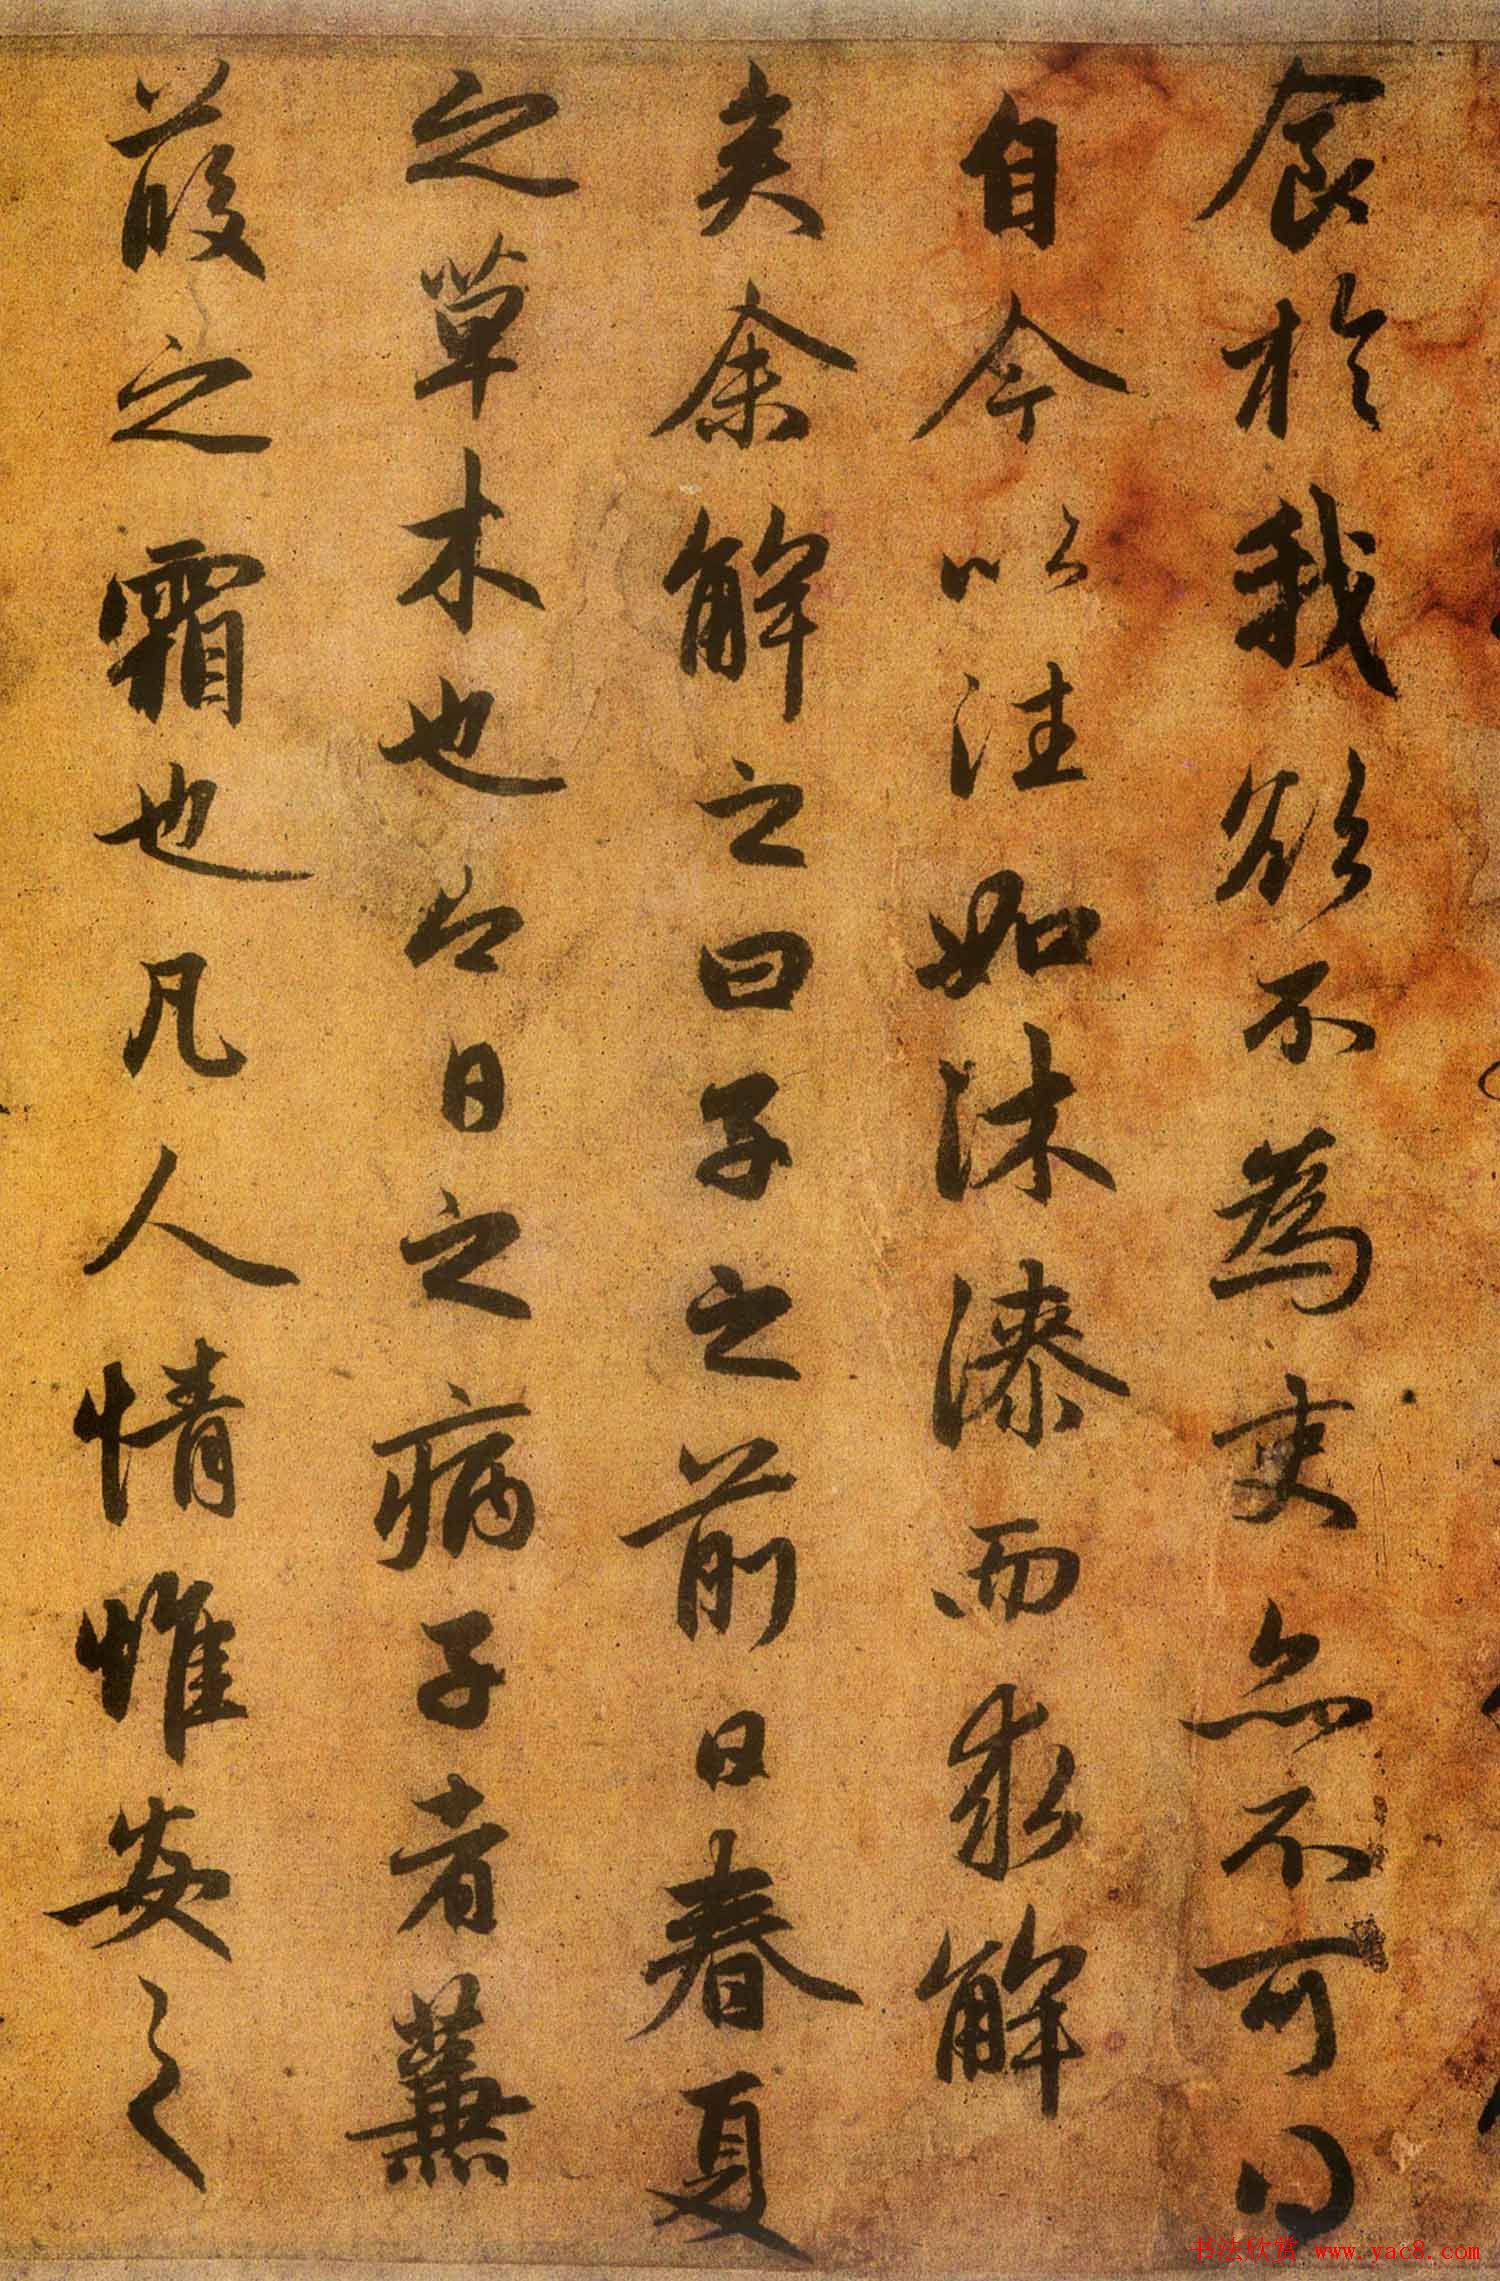 食於我欲不為吏亦不可得
自今以往如沐漆而求解
矣余解之曰子之前日春夏
之草木也今日之病子者蒹
葭之霜也凡人情惟安之
书法欣赏 www.yac8.com